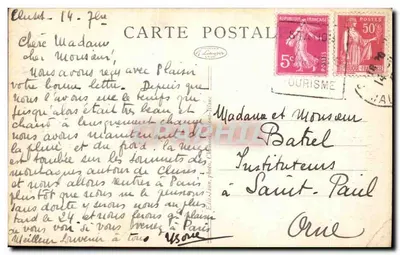 Cluses - 14 - 7bre
CARTE POSTALE
Chère Madame
cher Monsieur,
Nous avons reçu avec plaisir
votre bonne lettre. Depuis que
nous l'avons eue le temps qui
jusqu'alors était très beau et
chaud a brusquement changé
nous avons maintenant de
la pluie et du froid. la neige
est tombée sur les sommets des
montagnes autour de Cluses -
et nous allons rentrer à Paris
plus tôt que nous ne le pensions
sans doute y serons nous au plus
tard le 24. et nous ferons gd plaisir
de vous voir si vous venez à Paris
Meilleur souvenir à tous
5c
POSTES
50c
TOURISME
Madame et Monsieur
Batrel
Instituteurs
à Saint-Paul
Orne